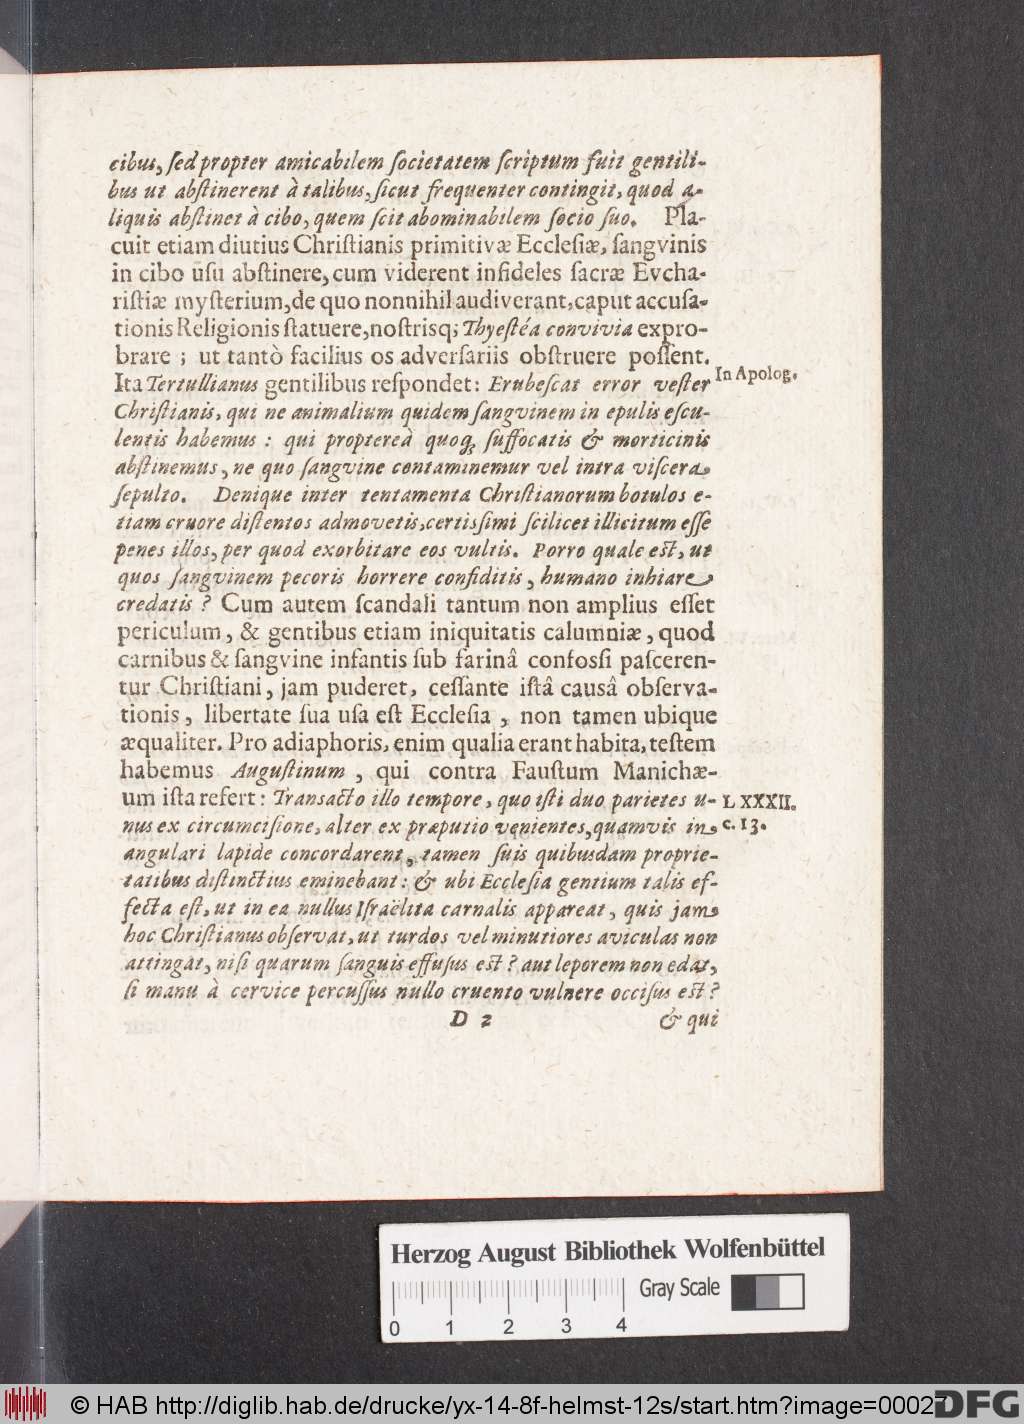 cibus, ſed propter amicabilem ſocietatem ſcriptum fuit gentili-
bus ut abſtinerent à talibus, ſicut frequenter contingit, quod a-
liquis abſtinet à cibo, quem ſcit abominabilem ſocio ſuo. Pla-
cuit etiam diutius Chriſtianis primitivæ Eccleſiæ, ſangvinis
in cibo uſu abſtinere, cum viderent infideles ſacræ Evcha-
riſtiæ myſterium, de quo nonnihil audiverant, caput accuſa-
tionis Religionis ſtatuere, noſtrisq; Thyeſtéa convivia expro-
brare ; ut tantò facilius os adverſariis obſtruere poſſent.
Ita Tertullianus gentilibus reſpondet: Erubeſcat error veſter
In Apolog.
Chriſtianis, qui ne animalium quidem ſangvinem in epulis eſcu-
lentis habemus : qui propterea̍ quoq; ſuffocatis & morticinis
abſtinemus, ne quo ſangvine contaminemur vel intra viſcera
ſepulto. Denique inter tentamenta Chriſtianorum botulos e-
tiam cruore diſtentos admovetis, certisſimi ſcilicet illicitum eſſe
penes illos, per quod exorbitare eos vultis. Porro quale eſt, ut
quos ſangvinem pecoris horrere confiditis, humano inhiare
credatis ? Cum autem ſcandali tantum non amplius eſſet
periculum, & gentibus etiam iniquitatis calumniæ, quod
carnibus & ſangvine infantis ſub farinâ confoſſi paſceren-
tur Chriſtiani, jam puderet, ceſſante iſtâ causâ obſerva-
tionis, libertate ſua uſa eſt Eccleſia, non tamen ubique
æqualiter. Pro adiaphoris, enim qualia erant habita, teſtem
habemus Auguſtinum, qui contra Fauſtum Manichæ-
um iſta refert: Transacto illo tempore, quo iſti duo parietes u-
L XXXII.
nus ex circumciſione, alter ex præputio venientes, quamvis in
c. 13.
angulari lapide concordarent, tamen ſuis quibusdam proprie-
tatibus diſtinctius eminebant: & ubi Eccleſia gentium talis ef-
fecta eſt, ut in ea nullus Iſraëlita carnalis appareat, quis jam
hoc Chriſtianus obſervat, ut turdos vel minutiores aviculas non
attingat, niſi quarum ſanguis effuſus eſt ? aut leporem non edat,
ſi manu à cervice percuſſus nullo cruento vulnere occiſus eſt ?
D 2
& qui
Herzog August Bibliothek Wolfenbüttel
Gray Scale
0 1 2 3 4
© HAB http://diglib.hab.de/drucke/yx-14-8f-helmst-12s/start.htm?image=00027
DFG